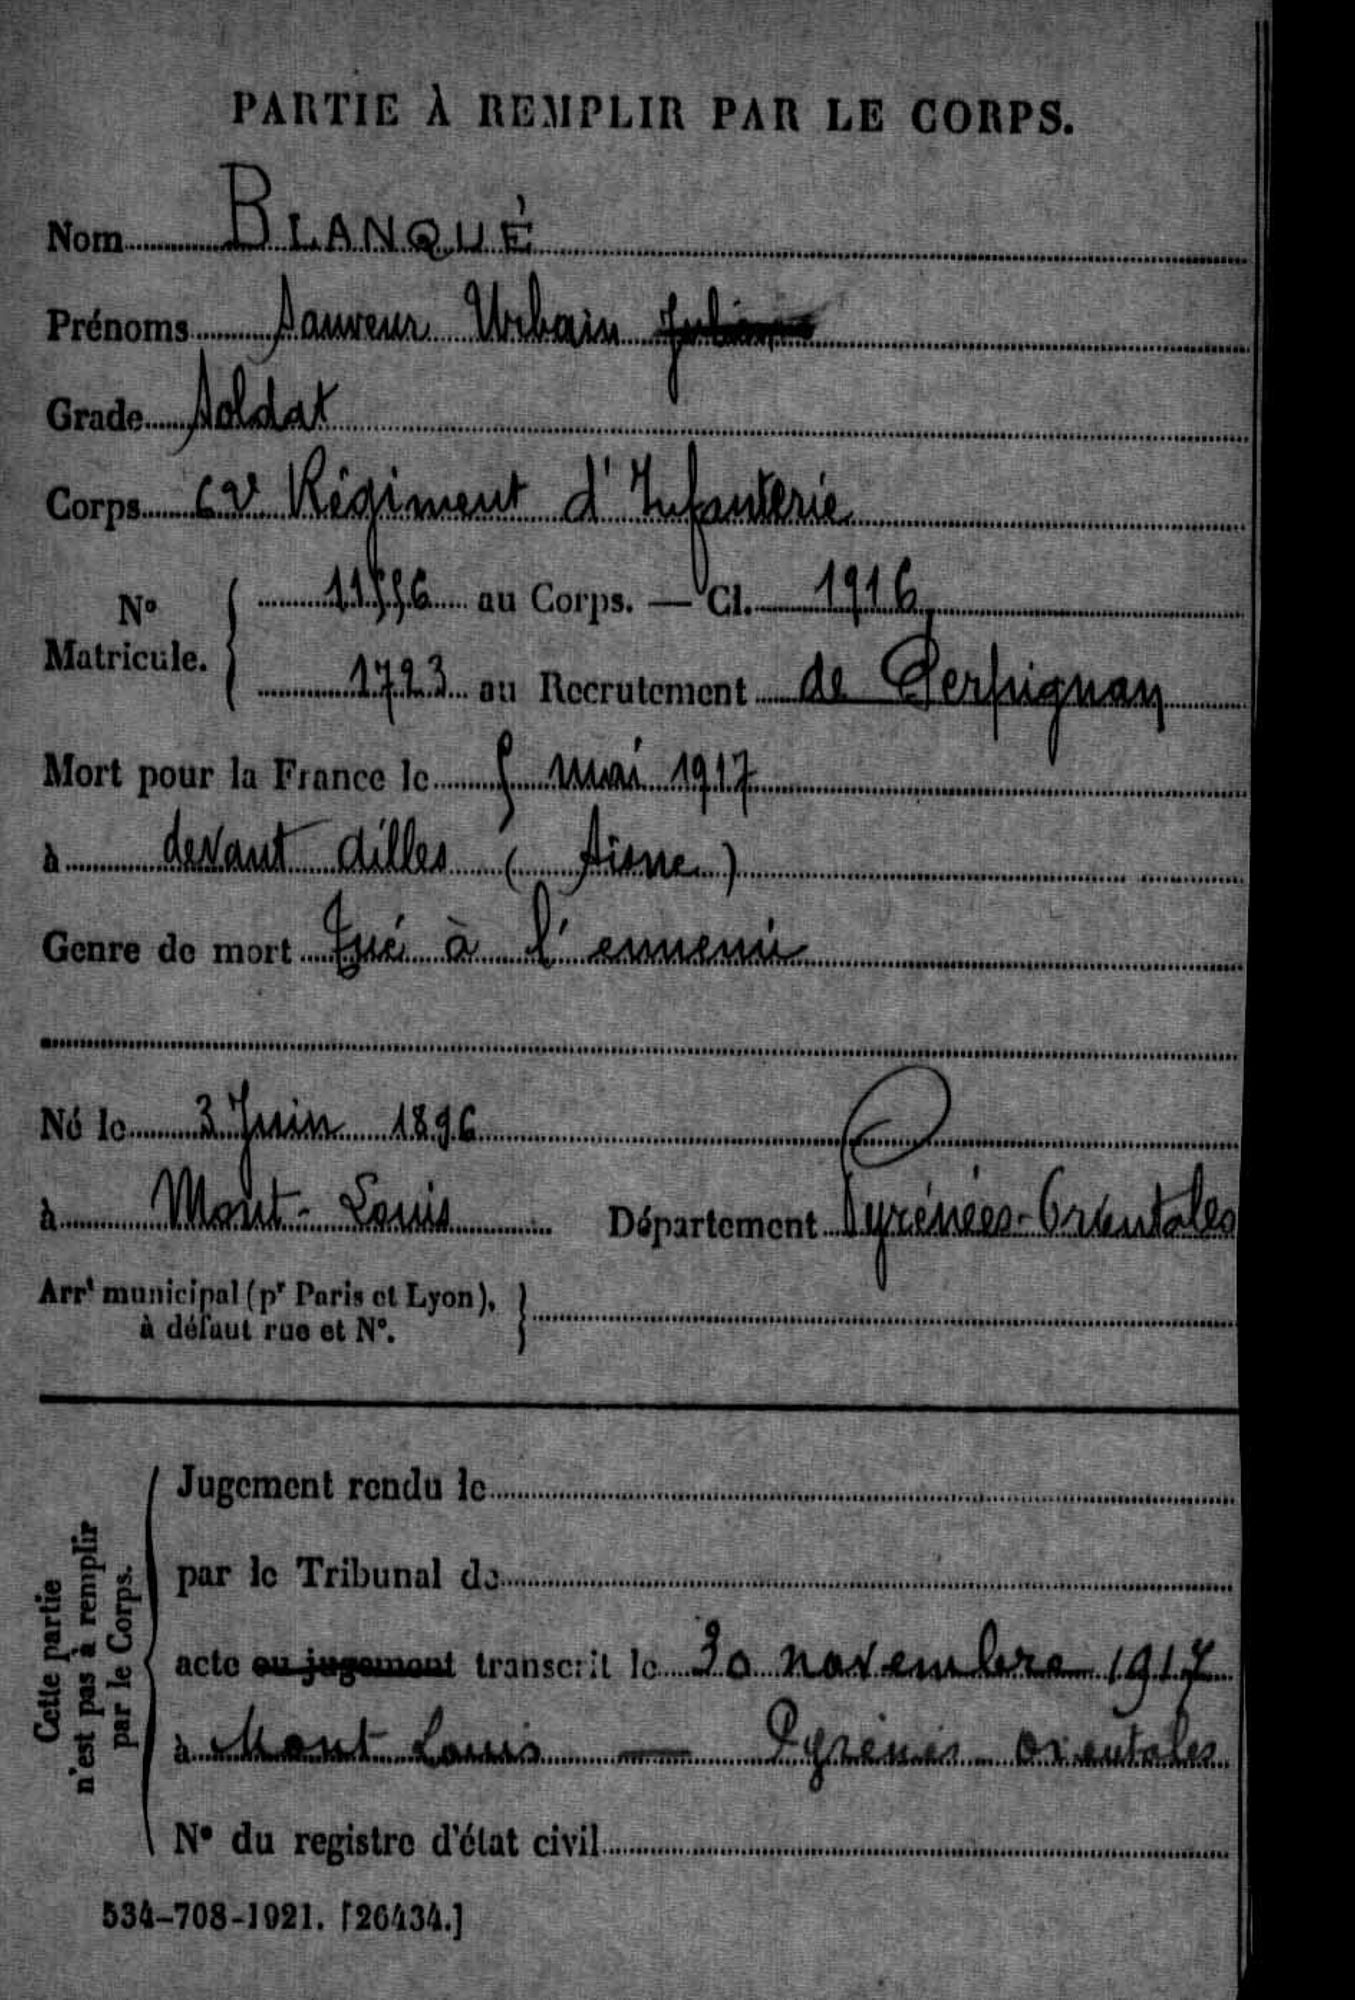 PARTIE À REMPLIR PAR LE CORPS.
Nom BLANQUÉ
Prénoms Sauveur Urbain
Grade Soldat
Corps Régiment d'Infanterie
N° Matricule. au Corps. — Cl. 1916
1723 au Recrutement de Perpignan
Mort pour la France le 5 mai 1917
à devant dilles (Aisne)
Genre de mort Tué à l'ennemi
Né le 3 Juin 1896
à Mont-Louis Département Pyrénées-Orientales
Arrt municipal (pr Paris et Lyon),
à défaut rue et N°.
Cette partie
n'est pas à remplir
par le Corps.
Jugement rendu le
par le Tribunal de
acte ou jugement transcrit le 30 novembre 1917
à Mont Louis — Pyrénés orientales
N° du registre d'état civil
534-708-1921. [26434.]